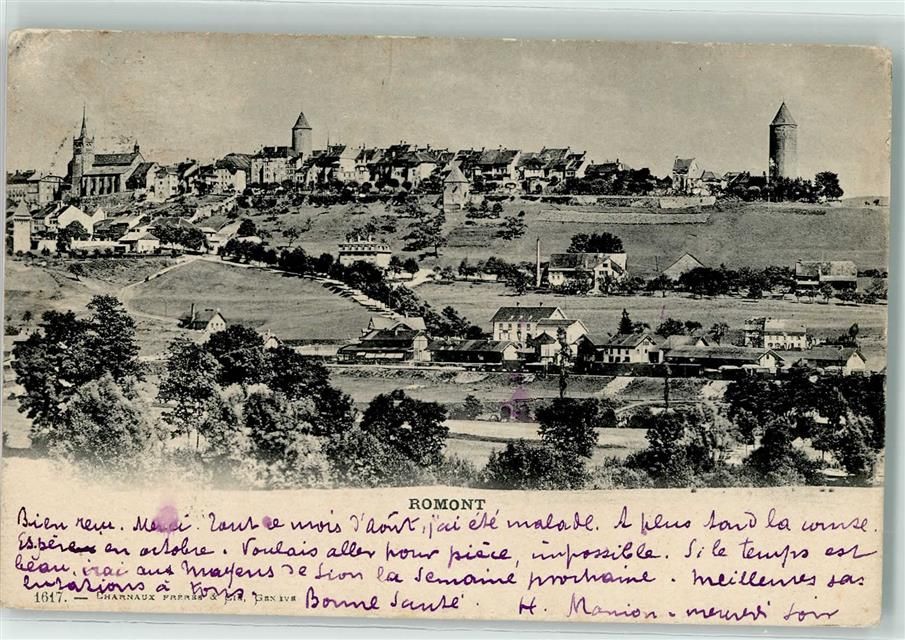 ROMONT
Bien reçu. Merci. Tout ce mois d'Août, j'ai été malade. A plus tard la course.
Espère en octobre. Voulais aller pour pièce, impossible. Si le temps est
beau, irai aux Mayens de Sion la semaine prochaine. Meilleures sa-
lutations à tous. Bonne Santé. H. Manion - mercredi soir
1617. — CHARNAUX FRÈRES & Cie, GENÈVE